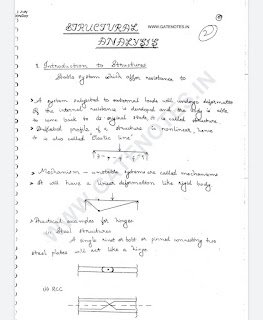 STRUCTURAL
WWW.GATENOTES.IN
ANALYSIS
2
1. Introduction to Structures
Stable system which offer resistance to
A system subjected to external loads will undergo deformation
if the internal resistance is developed and the body is able
to come back to its original state, it is called structure
Deflected profile of a structure is nonlinear, hence
it is also called Elastic line
Mechanism - unstable systems are called mechanisms
It will have a linear deformation like rigid body
Practical examples for hinges
(i) Steel structures
A single rivet or bolt or pinned connecting two
steel plates will act like a hinge.
(ii) RCC
WWW.GATENOTES.IN